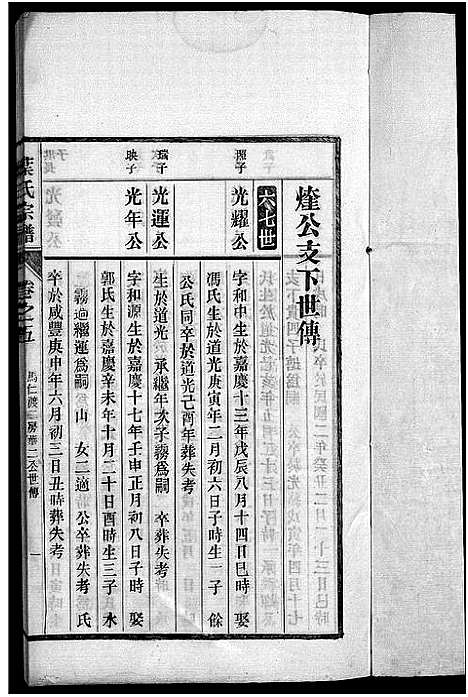 煃公支下世傳
六七世
照子
光耀公
字和中生於嘉慶十三年戊辰八月十四日巳時 娶
馮氏生於道光庚寅年二月初六日子時生一子 餘
公氏同卒於道光己酉年葬失考
瑞子
光運公
生於道光 承繼年次子霧爲嗣 卒葬失考
映子
光年公
字和源生於嘉慶十七年壬申正月初八日子時 娶
郭氏生於嘉慶辛未年十月二十日酉時生三子 水
霧 過繼運爲嗣 山 女二適 公卒葬失考 氏
卒於咸豐庚申年六月初三日丑時葬失考
葉氏宗譜
卷之五
馬仁渡二房華二公世傳
一